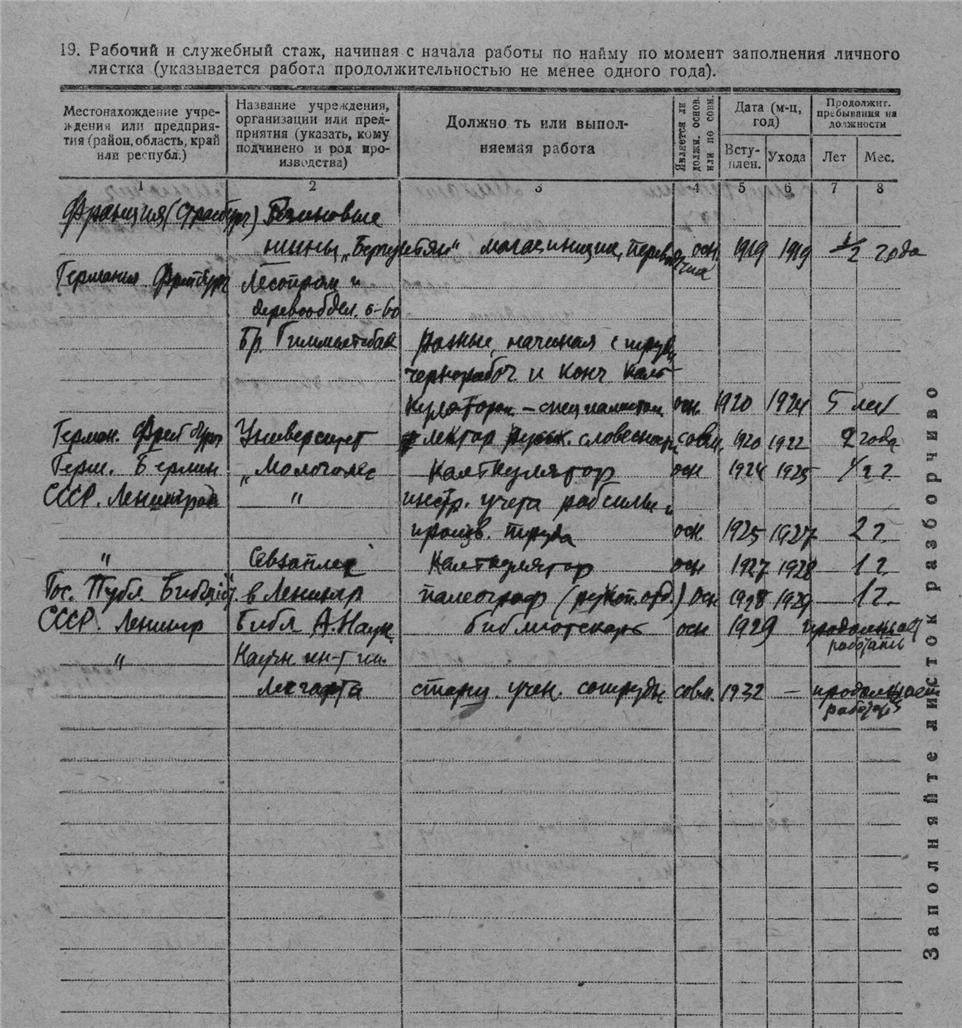 19. Рабочий и служебный стаж, начиная с начала работы по найму по момент заполнения личного
листка (указывается работа продолжительностью не менее одного года).
Местонахождение учре-
ждения или предприя-
тия (район, область, край
или республ.)
Название учреждения,
организации или пред-
приятия (указать, кому
подчинено и род про-
изводства)
Должно ть или выпол-
няемая работа
Является ли
должн. основ.
или по совм.
Дата (м-ц,
год)
Вступлен.
Ухода
Продолжит.
пребывания на
должности
Лет
Мес.
1 2 3 4 5 6 7 8
Франция Резиновые
шины осн. 1919 1919 1/2 года
Германия Фрейбург Лесопром и
деревообдел.
Бр. разные, начиная с
чернорабоч и конч каль-
кулятором – специалистом осн. 1920 1924 5 лет
Герман. Фрейбург Университет лектор русск. словесности совм. 1920 1922 2 года
Герм. Берлин „Мологолес калькулятор осн 1924 1925 1/2 г.
СССР. Ленинград " инстр. учета рабсилы и
произв. труда осн. 1925 1927 2 г.
" Севзаплес калькулятор осн 1927 1928 1 г.
Гос. Публ. Библ. в Ленингр палеограф (рукоп. отд.) осн 1928 1929 1 г.
СССР. Ленингр Библ А. Наук библиотекарь осн 1929 продолжает
работать
" Научн. ин-т им.
Лесгафта старш. учен. сотрудн совм. 1932 — продолжает
работать
Заполняйте листок разборчиво